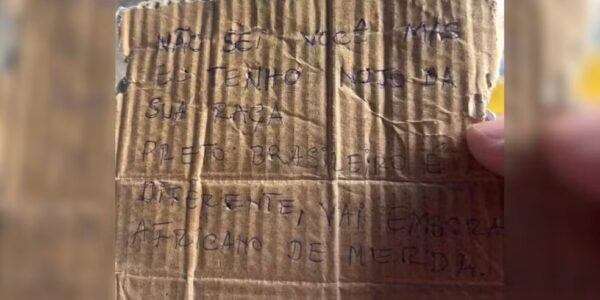 NÃO SEI VOCÊ MAS
EU TENHO NOJO DA
SUA RAÇA
PRETO BRASILEIRO É
DIFERENTE, VAI EMBORA
AFRICANO DE MERDA.